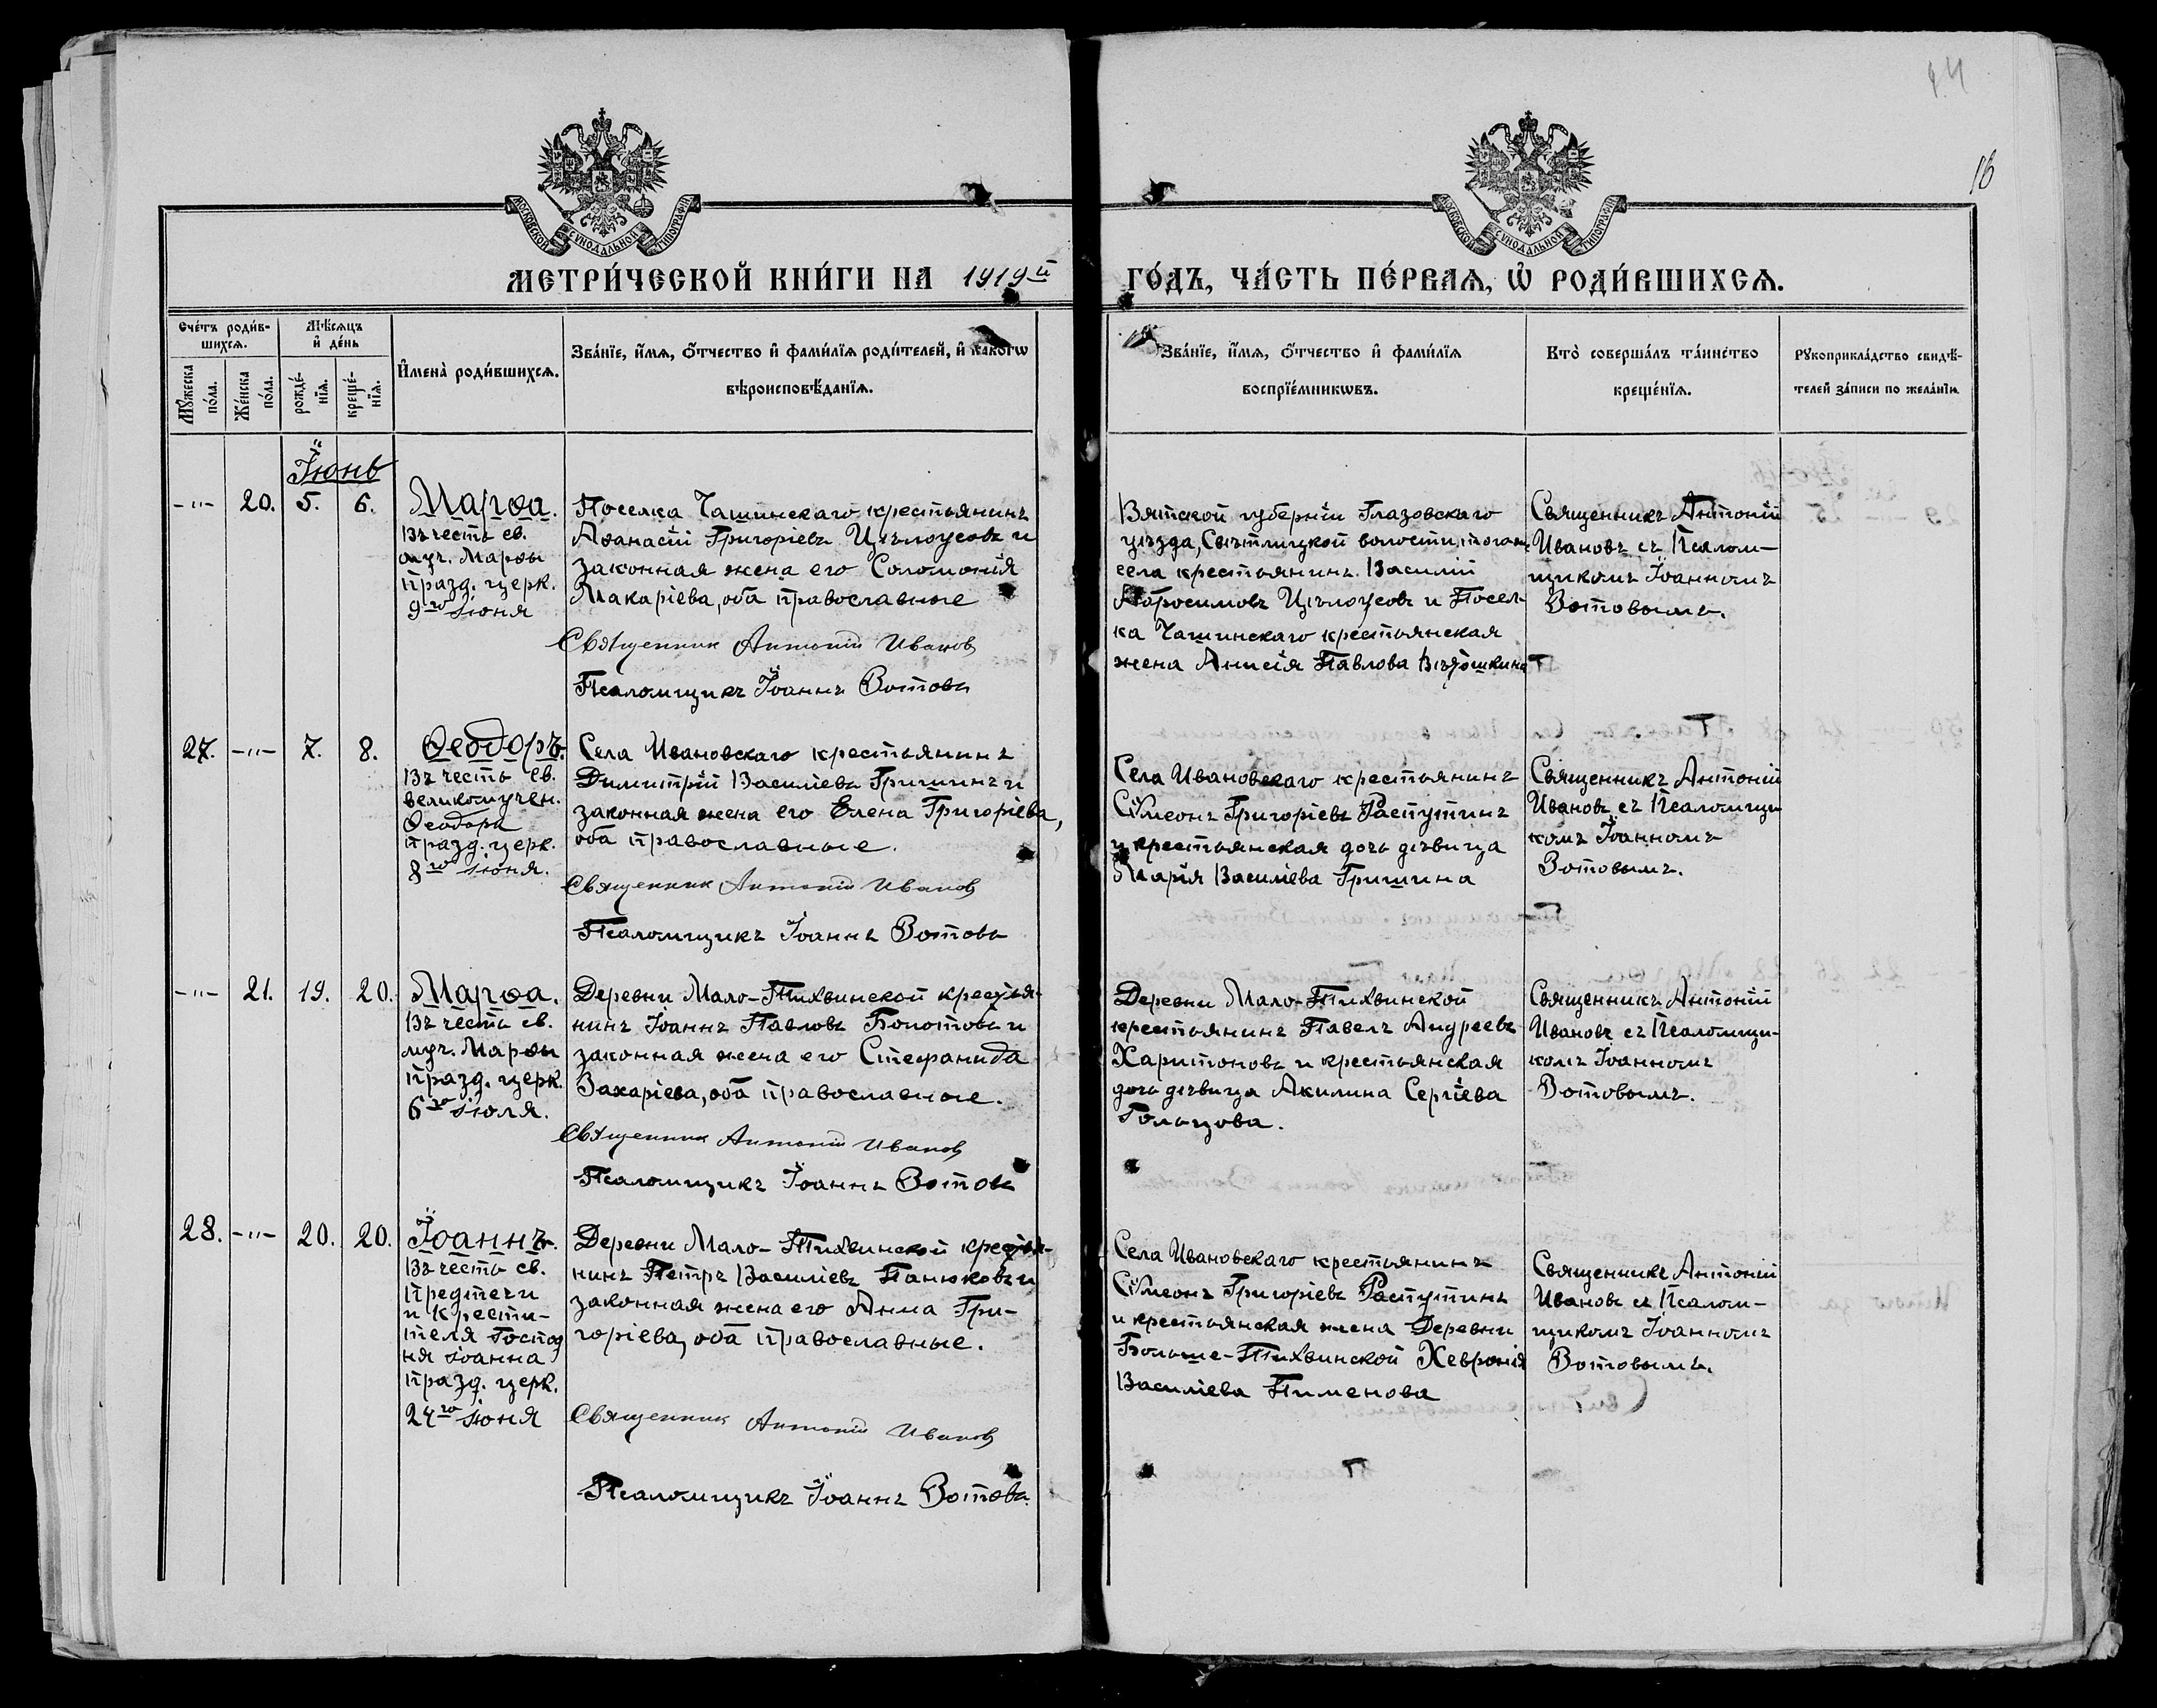 14
16
МОСКОВСКОЙ СѴНОДАЛЬНОЙ ТИПОГРАФІИ
МОСКОВСКОЙ СѴНОДАЛЬНОЙ ТИПОГРАФІИ
МЕТРИ́ЧЕСКОЙ КНИ́ГИ НА 1919й ГО́ДЪ, ЧА́СТЬ ПЕ́РВАѦ, Ѡ҆ РОДИ́ВШИХСѦ.
Сче́тъ роди́в-
шихсѧ.
Мꙋжеска по́ла.
Же́нска по́ла.
Мѣ́сѧцъ
и҆ де́нь
рожде́-
нїѧ.
креще́-
нїѧ.
И҆мена̀ роди́вшихсѧ.
Зва́нїе, и҆́мѧ, ѻ҆́тчество и҆ фами́лїѧ роди́телей, и҆ како́гѡ
вѣроисповѣ́данїѧ.
Зва́нїе, и҆́мѧ, ѻ҆́тчество и҆ фами́лїѧ
воспрїе́мникѡвъ.
Кто̀ соверша́лъ та́инство
креще́нїѧ.
Рꙋкоприкла́дство свидѣ́-
телей за́писи по жела́нїю.
Іюнь
-"- 20. 5. 6.
Марѳа.
Въ честь св.
муч. Марѳы
празд. церк.
9го іюня
Поселка Чашинскаго крестьянинъ
Аѳанасій Григоріевъ Цѣлоусовъ и
законная жена его Соломонія
Макаріева, оба православные
Священник Антоній Иванов
Псаломщикъ Іоаннъ Вотовъ
Вятской губерніи Глазовскаго
уѣзда, Свѣтлицкой волости, тогоже
села крестьянинъ Василій
Абросимовъ Цѣлоусовъ и Посел-
ка Чашинскаго крестьянская
жена Анисія Павлова
Священникъ Антоній
Ивановъ съ Псалом-
щикомъ Іоанномъ
Вотовымъ.
27. -"- 7. 8.
Ѳеодоръ.
Въ честь св.
великомучен.
Ѳеодора
празд. церк.
8го іюня.
Села Ивановскаго крестьянинъ
Димитрій Василіевъ Гришинъ и
законная жена его Елена Григоріева,
оба православные.
Священник Антоній Иванов
Псаломщикъ Іоаннъ Вотовъ
Села Ивановскаго крестьянинъ
Сѵмеонъ Григоріевъ Распутинъ
и крестьянская дочь дѣвица
Марія Василіева Гришина
Священникъ Антоній
Ивановъ съ Псаломщи
комъ Іоанномъ
Вотовымъ.
-"- 21. 19. 20.
Марѳа.
Въ честь св.
муч. Марѳы
празд. церк.
6го іюля.
Деревни Мало-Тихвинской крестья-
нинъ Іоаннъ Павловъ Болотовъ и
законная жена его Стефанида
Захаріева, оба православные.
Священник Антоній Иванов
Псаломщикъ Іоаннъ Вотовъ
Деревни Мало-Тихвинской
крестьянинъ Павелъ Андреевъ
Харитоновъ и крестьянская
дочь дѣвица Акилина Сергіева
Гольцова.
Священникъ Антоній
Ивановъ съ Псаломщи-
комъ Іоанномъ
Вотовымъ.
28. -"- 20. 20.
Іоаннъ.
Въ честь св.
Предтечи
и Крести-
теля Господ
ня Іоанна
празд. церк.
24го іюня
Деревни Мало-Тихвинской крестья-
нинъ Петръ Василіевъ Панюковъ и
законная жена его Анна Гри-
горіева, оба православные.
Священник Антоній Иванов
Псаломщикъ Іоаннъ Вотовъ
Села Ивановскаго крестьянинъ
Сѵмеонъ Григоріевъ Распутинъ
и крестьянская жена Деревни
Больше-Тихвинской Хевронія
Василіева Пименова
Священникъ Антоній
Ивановъ съ Псалом-
щикомъ Іоанномъ
Вотовымъ.